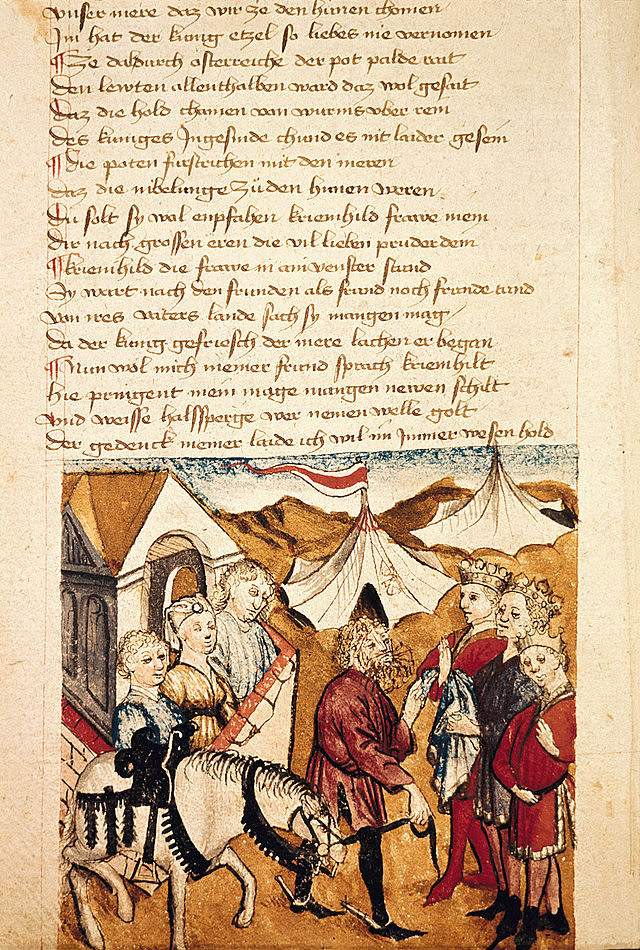 vnser mere daz wir ze den hunen chomen
Im hat der kunig etzel so liebes nie vernomen
¶ Ze dal durch osterreiche der pot palde rait
den lewten allenthalben ward daz wol gesait
daz die hold chamen von wurms vber rein
des kuniges Ingesinde chund es nit laider gesein
¶ die poten furstrichen mit den meren
daz die nibelunge zu den hunen weren
du solt sy wol enpfahen kriemhild frawe mein
dir nach grossen eren die vil lieben pruder dein
¶ kriemhild die frawe in aim venster stand
Sy wart nach den frunden als frund noch frunde tund
von ires vaters lande sach sy mangen mag
da der kunig gefriesch der mere lachen er began
¶ Nun wol mich meiner frund sprach kriemhilt
hie pringent mein mage mangen newen schilt
vnd weisse halssperge wer nemen welle golt
der gedenck meiner laide ich wil im Immer wesen hold